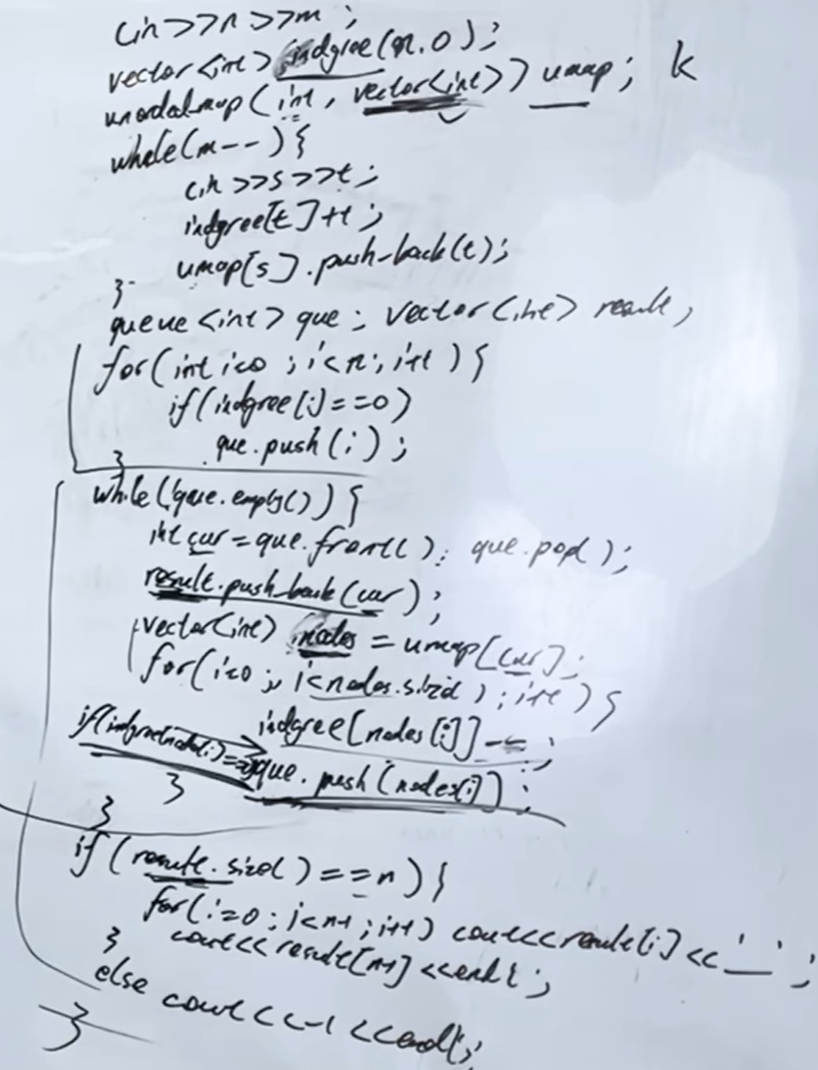 cin>>n>>m;
vector<int> indgree(n,0);
unordedmap(int, vector<int>) umap; k
while(m--){
cin>>s>>t;
indgree[t]++;
umap[s].push-back(t);
}
queue<int> que; vector<int> result,
for(int i=0; i<n; i++){
if(indgree[i]==0)
que.push(i);
}
while(!que.empty()){
int cur=que.front(); que.pop();
result.push_back(cur);
vector<int> nodes = umap[cur];
for(i=0; i<nodes.size(); i++){
indgree[nodes[i]]--;
if(indgree[nodes[i]]==0)que.push(nodes[i]);
}
}
if(result.size()==n){
for(i=0; i<n-1; i++) cout<<result[i]<<'_';
cout<<result[n-1]<<endl;
}
else cout<<-1<<endl;
}